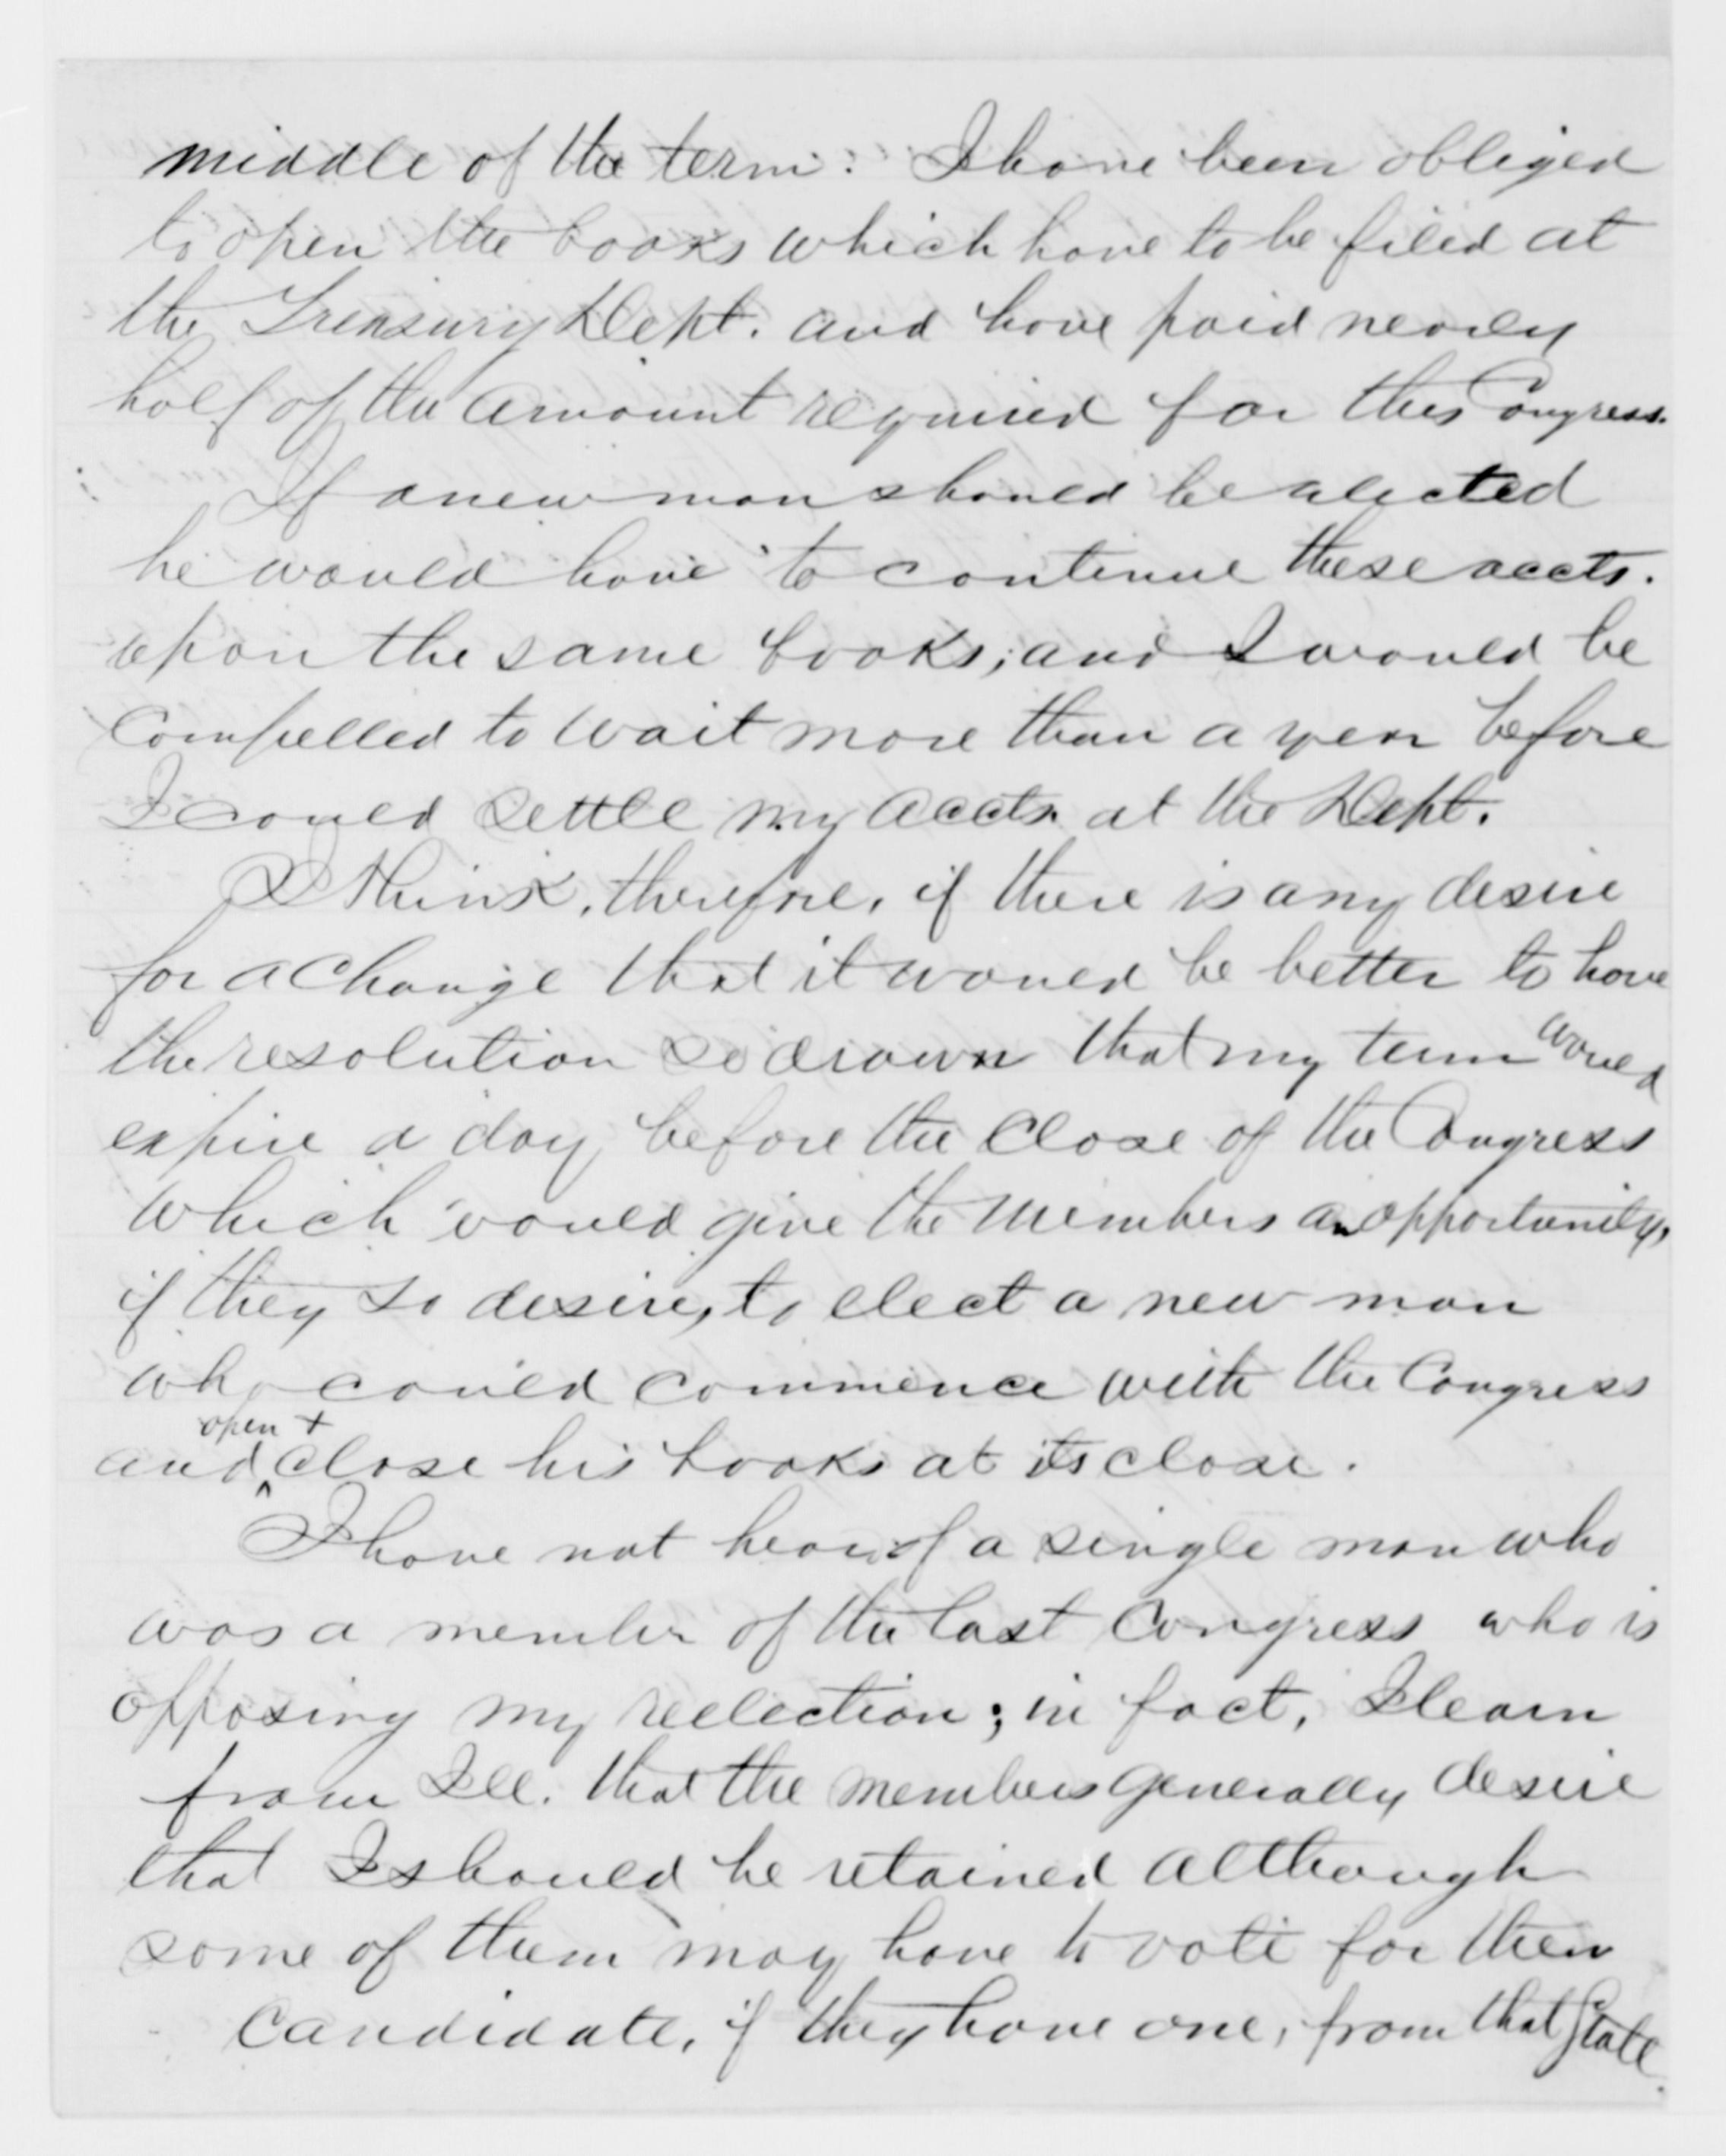 middle of the term: I have been obliged
to open the books which have to be filed at
the Treasury Dept. and have paid nearly
half of the amount required for this Congress.
If a new man should be elected
he would have to continue these accts.
upon the same books; and I would be
compelled to wait more than a year before
I could settle my accts. at the Dept.
I think, therefore, if there is any desire
for a change that it would be better to have
the resolution so drawn that my term would
expire a day before the close of the Congress
which would give the members an opportunity,
if they so desire, to elect a new man
who could commence with the Congress
and open + close his books at its close.
I have not heard of a single man who
was a member of the last Congress who is
opposing my reelection; in fact, I learn
from Ill. that the members generally desire
that I should be retained although
some of them may have to vote for their
candidate, if they have one, from that State.